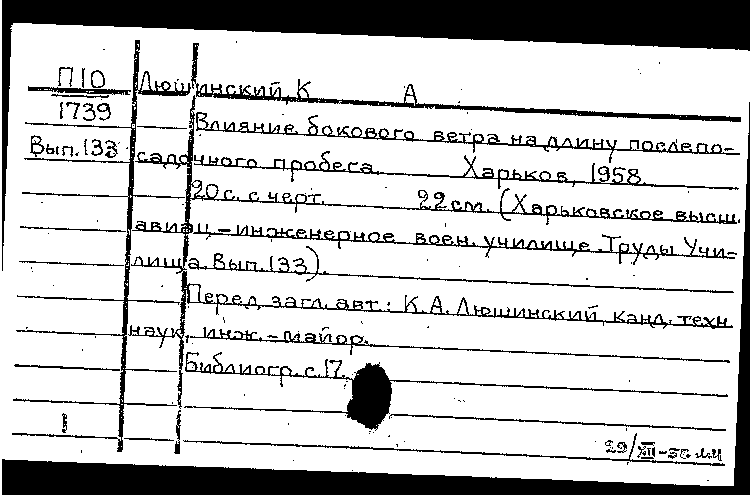 П10 Люшинский, К А
1739
Влияние бокового ветра на длину послепо-
Вып.133 садочного пробега. Харьков, 1958.
20 с. с черт. 22 см. (Харьковское высш.
авиац.-инженерное воен. училище. Труды Учи-
лища. Вып.133).
Перед загл. авт.: К.А. Люшинский, канд. техн.
наук, инж.-майор.
Библиогр. с.17.
1
29/XII-58